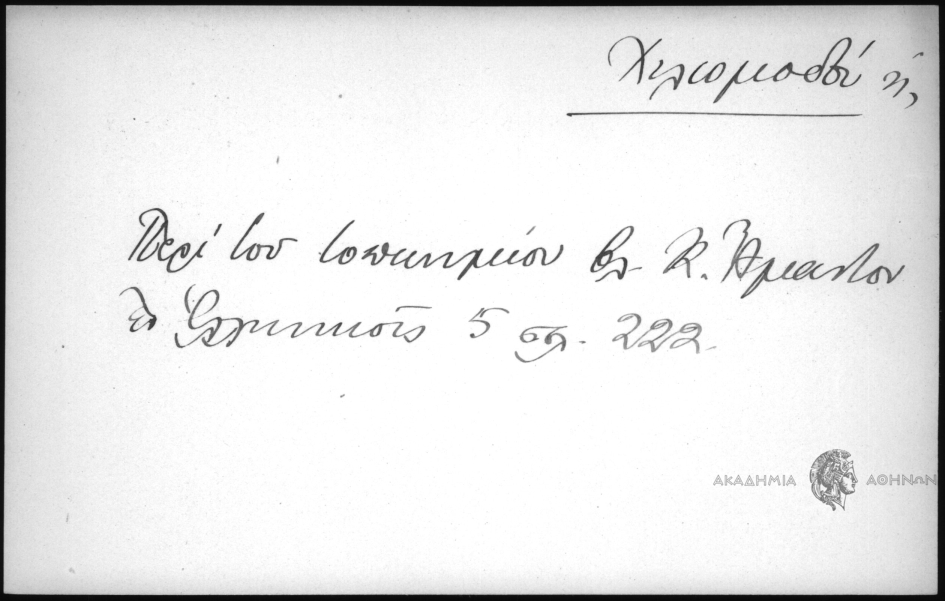 Χιλιομοδού ἡ,
Περὶ τοῦ τοπωνυμίου βλ. Κ. Ἄμαντον
ἐν Ἑλληνικοῖς 5 σελ. 222.
ΑΚΑΔΗΜΙΑ ΑΘΗΝΩΝ